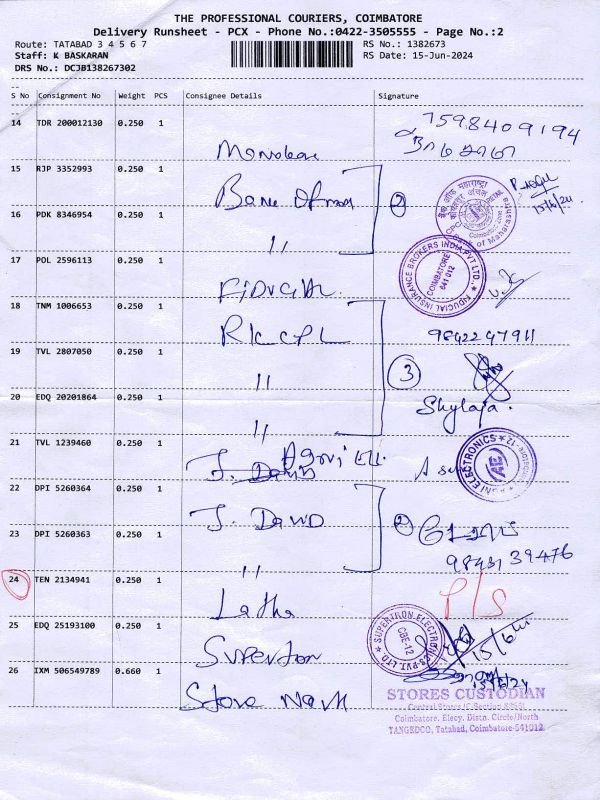 THE PROFESSIONAL COURIERS, COIMBATORE
Delivery Runsheet - PCX - Phone No.:0422-3505555 - Page No.:2
Route: TATABAD 3 4 5 6 7
RS No.: 1382673
Staff: K BASKARAN
RS Date: 15-Jun-2024
DRS No.: DCJB138267302
S No Consignment No Weight PCS Consignee Details Signature
14 TDR 200012130 0.250 1
7598409194
15 RJP 3352993 0.250 1
Bank Of
2
बैंक ऑफ महाराष्ट्र
Bank of Maharashtra
15/6/24
16 PDK 8346954 0.250 1
"
17 POL 2596113 0.250 1
FIDUCIAL INSURANCE BROKERS INDIA PVT LTD.,
COIMBATORE
641 012
18 TNM 1006653 0.250 1
9842247911
19 TVL 2807050 0.250 1
"
3
20 EDQ 20201864 0.250 1
"
Shylaja.
21 TVL 1239460 0.250 1
Agni Ele.
AGNI ELECTRONICS
22 DPI 5260364 0.250 1
J. David
2
23 DPI 5260363 0.250 1
"
98431 39476
24 TEN 2134941 0.250 1
Latha
P/S
25 EDQ 25193100 0.250 1
Supertron
SUPERTRON ELECTRONICS PVT. LTD
CBE-12
26 IXM 506549789 0.660 1
Store
STORES CUSTODIAN
Coimbatore. Elecy. Distn. Circle/North
TANGEDCO, Tatabad, Coimbatore-641012.